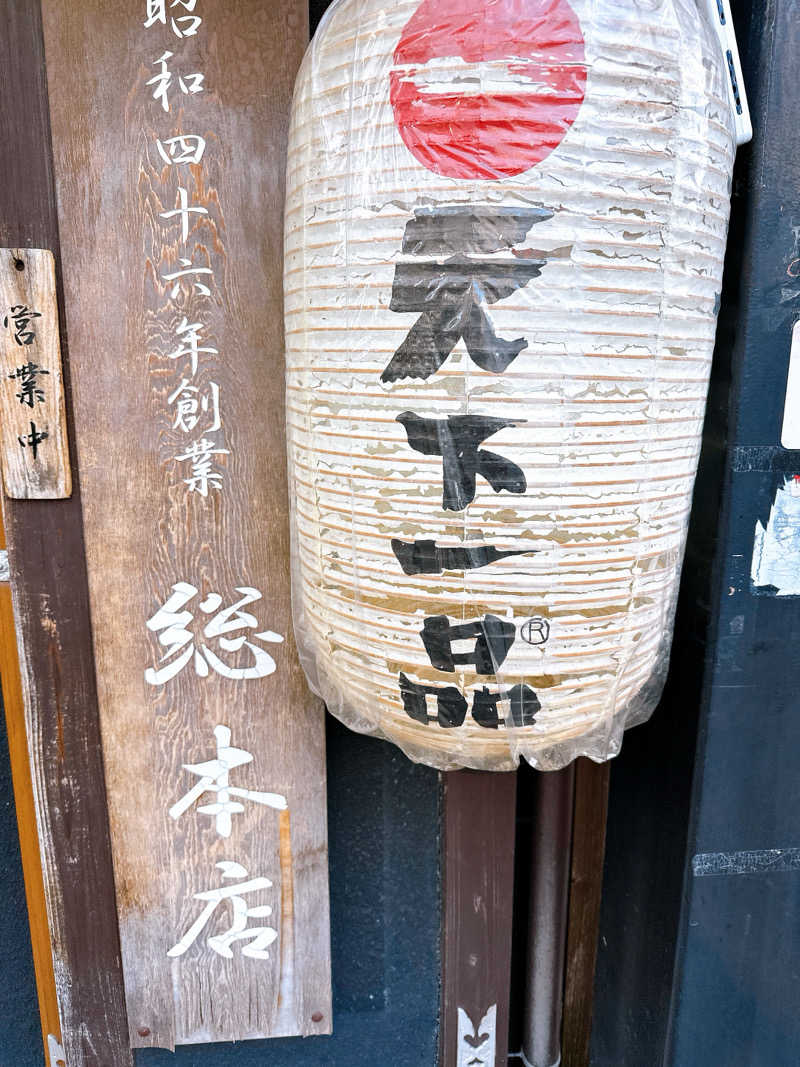 天下一品
®
昭和四十六年創業
総本店
営業中